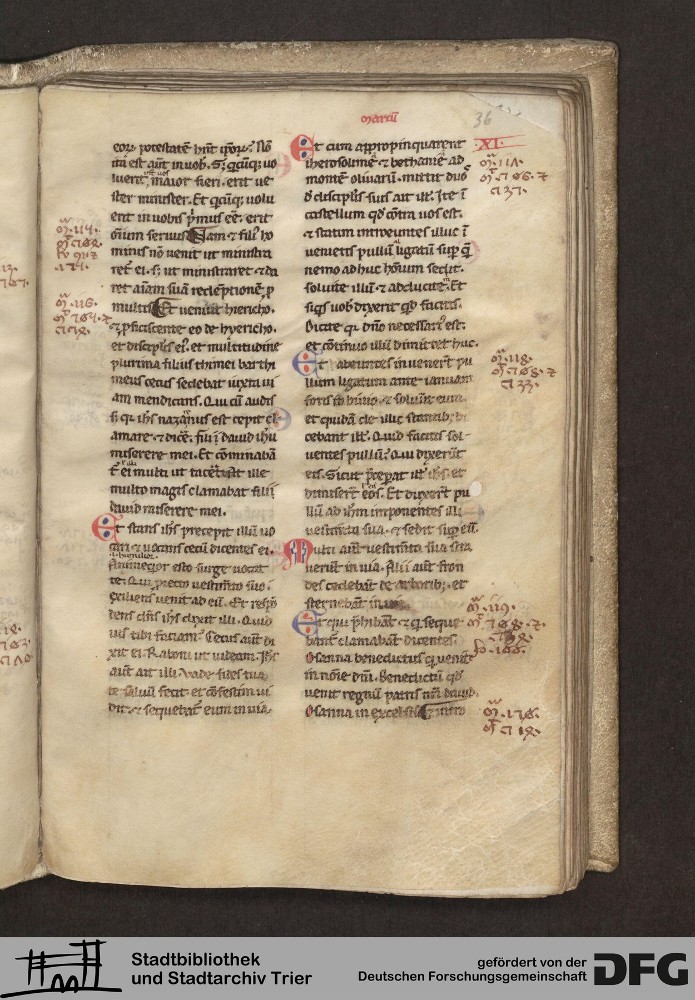 Marcū
36
eoꝝ potestatē hn̄t ip̄oꝝ. Nō
ita est aūt in uob. S; q̄cūq; uo
luerit maior fieri. erit ue
ster minister. Et q̄cūq; uolu
erit in uobis p̄mus eē. erit
om̄iū seruus. Nam & filiꝰ ho
minis nō uenit ut ministra
ret ei. s; ut ministraret & da
ret aīam suā redēptionē ꝓ
multis. Et ueniūt hiericho.
& ꝓficiscente eo de hyericho.
et discipl̄is eiꝰ. et multitudine
plurima filius thimei barthi
meus cecus sedebat iuxta ui
am mendicans. Qui cū audis
s; qꝛ ih̄s nazarenus est cepit cl
amare. & dicē. fili dauid ih̄u
miserere mei. Et cōminabā
t̄ ei multi ut tacēt. at ille
multo magis clamabat fili
dauid miserere mei.
Et stans ih̄s precepit illū uo
cari & uocant cecū dicentes ei.
Animeqior esto surge uocat
te. Qui proiecto uestim̄to suo
exiliens uenit ad eū. Et respō
dens ih̄s dixit illi. Quid
uis tibi faciam? Cecus aūt di
xit ei. Raboni ut uideam. Ih̄s
aūt ait illi. Vade fides tua
te saluū fecit. et cōfestim ui
dit. & sequebat̄ eum in uia.
Et cum appropinquarent
iherosolimē & bethanie ad
montē oliuarū. mittit duos
d̄ discipl̄is suis ait ill. Ite ī
castellum qd̄ cōtra uos est.
& statim introeuntes illuc ī
uenietis pullū ligatū suꝑ q̄
nemo adhuc hom̄um sedit.
soluite illū & adducite. Et
siq̄s uob dixerit qd̄ facitis.
Dicite qꝛ dn̄o necessariꝰ est.
et cōtinuo illū dimittet huc.
Et abeuntes inuenerūt pu
llum ligatum ante ianuam
foris in biuio. & soluūt eum.
et quidā de illic stantib; di
cebant ill. Quid facitis sol
uentes pullū? Qui dixerūt
eis. Sicut p̄ceperat ill ih̄s. et
dimiserūt eos. Et dixerūt pu
llū ad ih̄m imponentes illi
uestim̄ta sua. & sedit suꝑ eū.
Multi aūt uestim̄ta sua stra
uerūt in uia. Alii aūt fron
des cedebāt de arborib;. et
sternebāt in uia.
Et qui p̄hibāt & q̄ seque
bant̄ clamabāt dicentes.
Osanna benedictus q̄ uenit
in noīe dn̄i. Benedictū qd̄
uenit regnū patris nr̄i dauid.
Osanna in excelsis. & intro
XI.
Stadtbibliothek
und Stadtarchiv Trier
gefördert von der
Deutschen Forschungsgemeinschaft
DFG